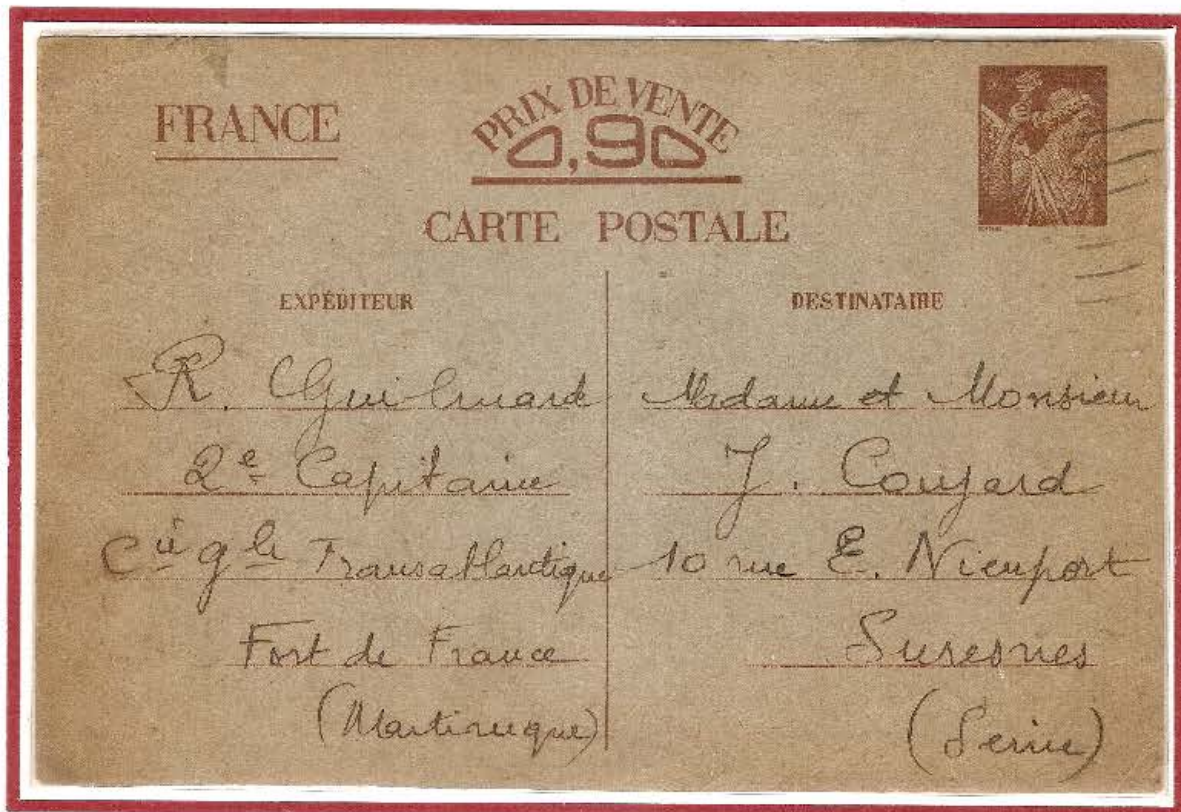 FRANCE
PRIX DE VENTE
0,90
CARTE POSTALE
EXPÉDITEUR
R. Guilmard
2e Capitaine
Cie gle Transatlantique
Fort de France
(Martinique)
DESTINATAIRE
Madame et Monsieur
J. Coujard
10 rue E. Nieuport
Suresnes
(Seine)